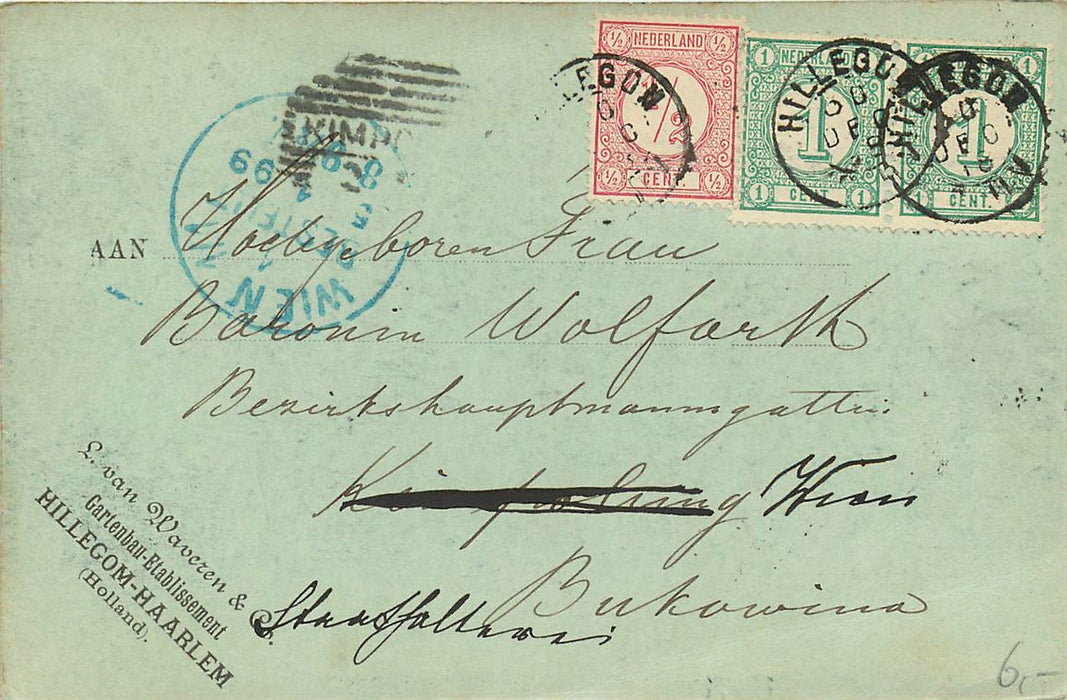 ½ NEDERLAND ½
1/2
½ CENT ½
1 NEDERLAND 1
1
1 CENT 1
1
CENT. 1
HILLEGOM
DEC
HILLEGOM
DEC
LLEGOM
KIMPO
WIEN
BESTELLT
99
AAN Hochgeboren Frau
Baronin Wolfarth
Bezirkshauptmannsgattin
Kimpolung Wien
Bukowina
Statthalterei
L. van Waveren & Co.
Gartenbau-Etablissement
HILLEGOM-HAARLEM
(Holland).
6,-